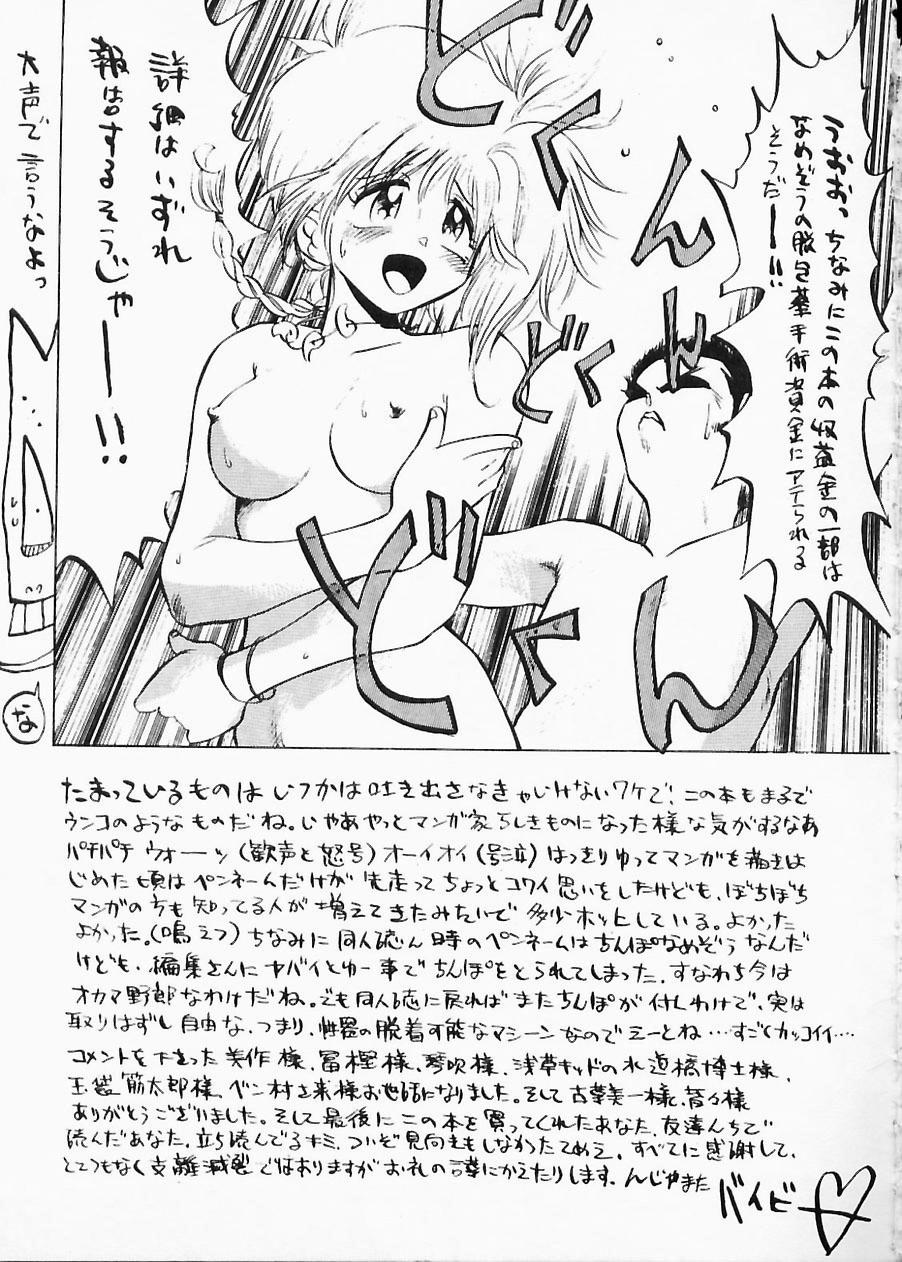 うおおっちなみにこの本の収益金の一部は
なめぞうの脱包茎手術資金にアテられる
そうだー!!
どくん
どくん
どくん
詳細はいずれ
報はするそうじゃー!!
大声で言うなよっ
な
たまっているものはいつかは吐き出さなきゃいけないワケで!この本もまるで
ウンコのようなものだね。じゃあやっとマンガ家らしきものになった様な気がするなあ
パチパチ ウォーーッ(歓声と怒号)オーイオイ(号泣)はっきりゆってマンガを描きは
じめた頃はペンネームだけが先走ってちょっとコワイ思いをしたけども、ぼちぼち
マンガの方も知ってる人が増えてきたみたいで多少ホッとしている。よかった
よかった。(嗚えつ)ちなみに同人誌ん時のペンネームはちんぽなめぞうなんだ
けども、編集さんにヤバイとゆー事でちんぽをとられてしまった。すなわち今は
オカマ野郎なわけだね。でも同人誌に戻ればまたちんぽが付くわけで、実は
取りはずし自由な、つまり、性器の脱着可能なマシーンなのでえーとね…すごくカッコイイ…
コメントを下さった美作様、冨樫様、琴吹様、浅草キッドの水道橋博士様、
玉袋筋太郎様、ベン村さ来様お世話になりました。そして古葉美一様、皆々様
ありがとうございました。そして最後にこの本を買ってくれたあなた、友達んちで
読んだあなた、立ち読んでるキミ、ついぞ見向きもしなかったてめえ。すべてに感謝して、
とてつもなく支離滅裂ではありますがお礼の言葉にかえたりします。んじゃまた
バイビー